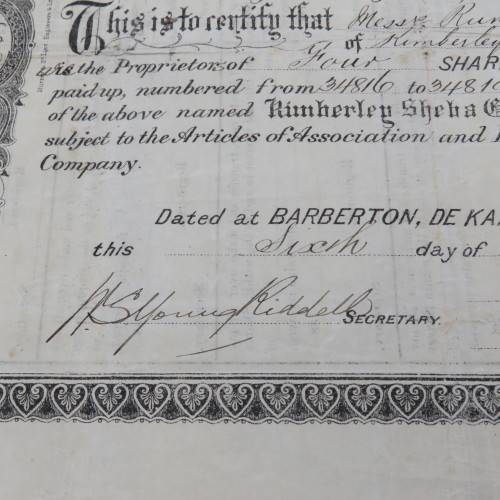 This is to certify that Messrs
of Kimberley
is the Proprietor of Four SHAR
paid up, numbered from 34816 to 3481
of the above named Kimberley Sheba G
subject to the Articles of Association and
Company.
Dated at BARBERTON, DE KA
this Sixth day of
Young Riddell
SECRETARY.